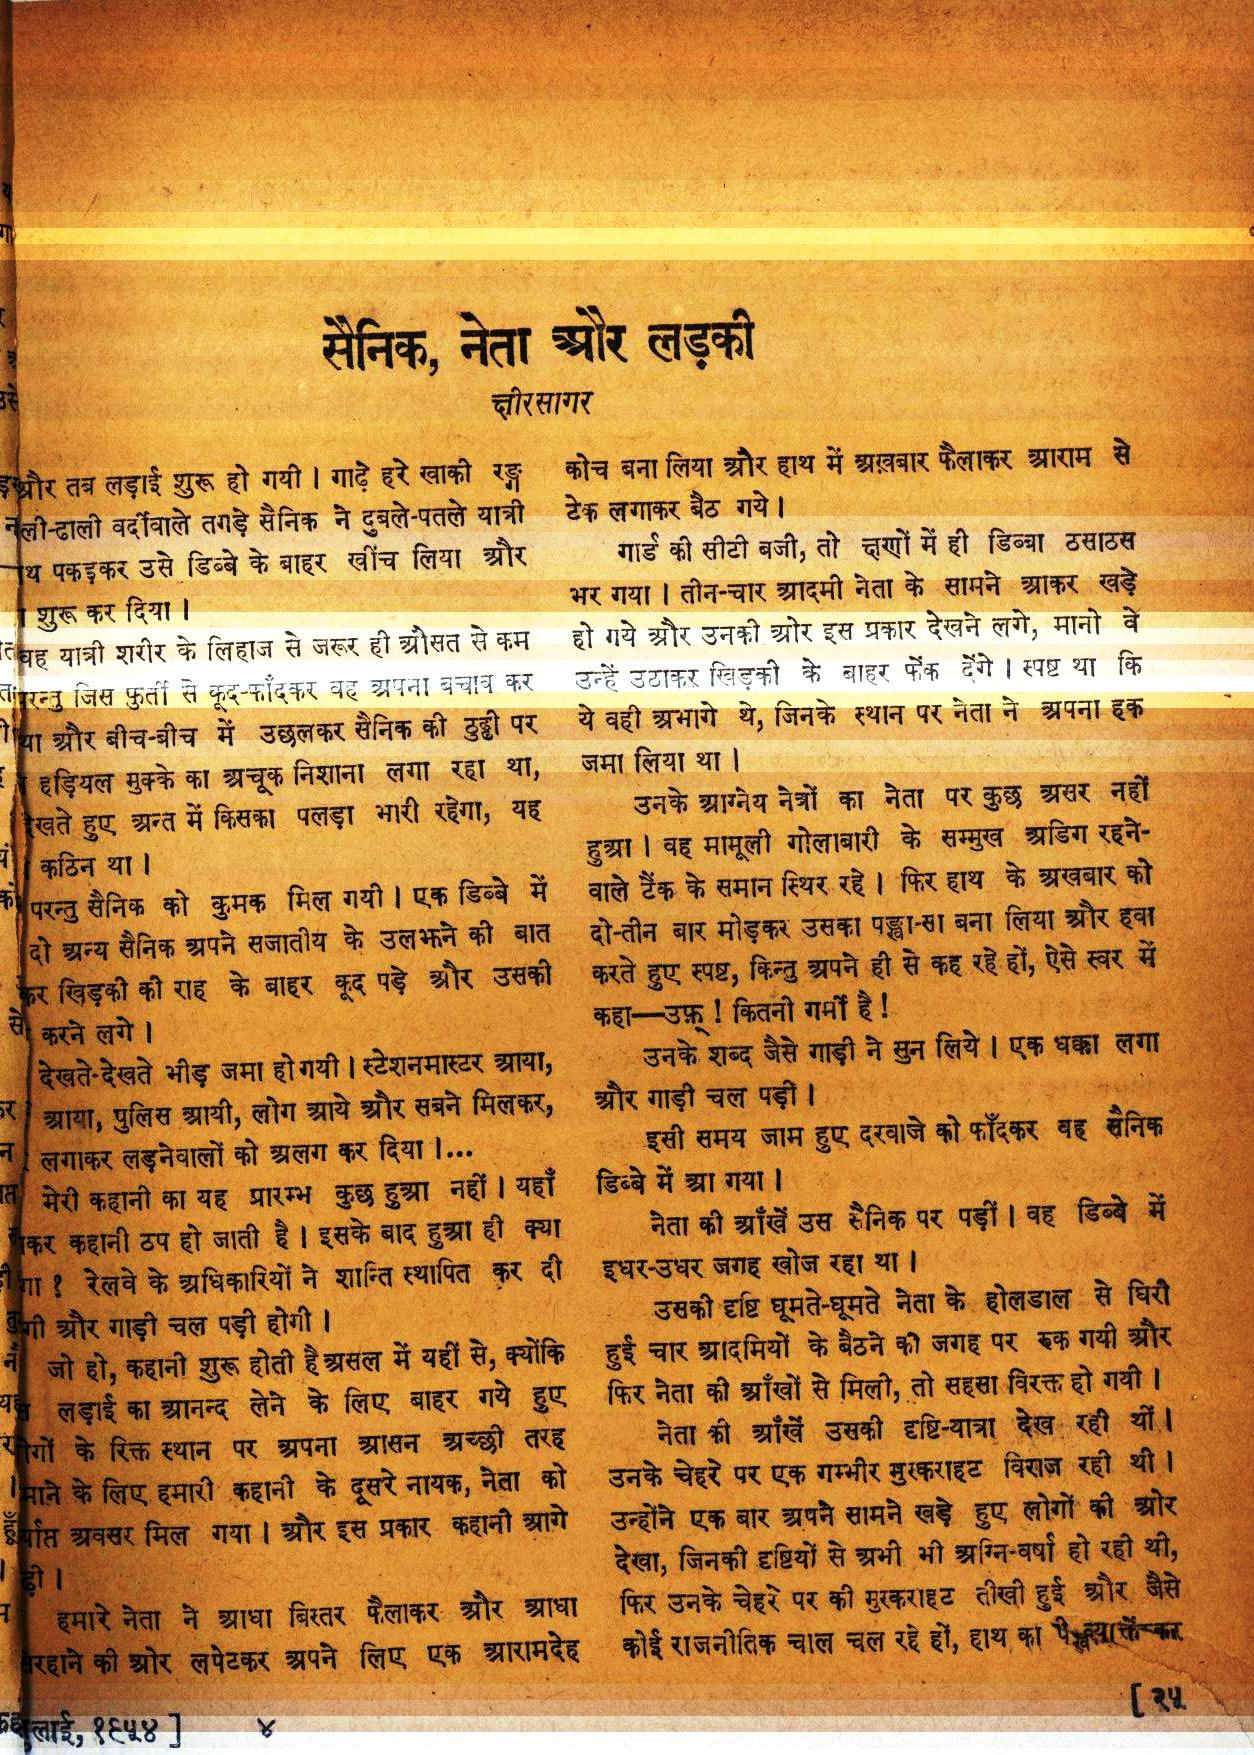 सैनिक, नेता और लड़की
क्षीरसागर
और तब लड़ाई शुरू हो गयी। गाढ़े हरे खाकी रङ्ग
ली-ढाली वर्दीवाले तगड़े सैनिक ने दुबले-पतले यात्री
थ पकड़कर उसे डिब्बे के बाहर खींच लिया और
शुरू कर दिया।
वह यात्री शरीर के लिहाज से जरूर ही औसत से कम
परन्तु जिस फुर्ती से कूद-फाँदकर वह अपना बचाव कर
या और बीच-बीच में उछलकर सैनिक की ठुड्ढी पर
हड़ियल मुक्के का अचूक निशाना लगा रहा था,
देखते हुए अन्त में किसका पलड़ा भारी रहेगा, यह
कठिन था।
परन्तु सैनिक को कुमक मिल गयी। एक डिब्बे में
दो अन्य सैनिक अपने सजातीय के उलझने की बात
कर खिड़की की राह के बाहर कूद पड़े और उसकी
करने लगे।
देखते-देखते भीड़ जमा हो गयी। स्टेशनमास्टर आया,
आया, पुलिस आयी, लोग आये और सबने मिलकर,
लगाकर लड़नेवालों को अलग कर दिया।...
मेरी कहानी का यह प्रारम्भ कुछ हुआ नहीं। यहाँ
कर कहानी ठप हो जाती है। इसके बाद हुआ ही क्या
गा? रेलवे के अधिकारियों ने शान्ति स्थापित कर दी
गी और गाड़ी चल पड़ी होगी।
जो हो, कहानी शुरू होती है असल में यहीं से, क्योंकि
लड़ाई का आनन्द लेने के लिए बाहर गये हुए
गों के रिक्त स्थान पर अपना आसन अच्छी तरह
माने के लिए हमारी कहानी के दूसरे नायक, नेता को
र्याप्त अवसर मिल गया। और इस प्रकार कहानी आगे
ढ़ी।
हमारे नेता ने आधा बिस्तर फैलाकर और आधा
रहाने की ओर लपेटकर अपने लिए एक आरामदेह
कोच बना लिया और हाथ में अख़बार फैलाकर आराम से
टेक लगाकर बैठ गये।
गार्ड की सीटी बजी, तो क्षणों में ही डिब्बा ठसाठस
भर गया। तीन-चार आदमी नेता के सामने आकर खड़े
हो गये और उनकी ओर इस प्रकार देखने लगे, मानो वे
उन्हें उठाकर खिड़की के बाहर फेंक देंगे। स्पष्ट था कि
ये वही अभागे थे, जिनके स्थान पर नेता ने अपना हक
जमा लिया था।
उनके आग्नेय नेत्रों का नेता पर कुछ असर नहीं
हुआ। वह मामूली गोलाबारी के सम्मुख अडिग रहने-
वाले टैंक के समान स्थिर रहे। फिर हाथ के अखबार को
दो-तीन बार मोड़कर उसका पङ्खा-सा बना लिया और हवा
करते हुए स्पष्ट, किन्तु अपने ही से कह रहे हों, ऐसे स्वर में
कहा—उफ़्! कितनी गर्मी है!
उनके शब्द जैसे गाड़ी ने सुन लिये। एक धक्का लगा
और गाड़ी चल पड़ी।
इसी समय जाम हुए दरवाजे को फाँदकर वह सैनिक
डिब्बे में आ गया।
नेता की आँखें उस सैनिक पर पड़ीं। वह डिब्बे में
इधर-उधर जगह खोज रहा था।
उसकी दृष्टि घूमते-घूमते नेता के होलडाल से घिरी
हुई चार आदमियों के बैठने की जगह पर रुक गयी और
फिर नेता की आँखों से मिली, तो सहसा विरक्त हो गयी।
नेता की आँखें उसकी दृष्टि-यात्रा देख रही थीं।
उनके चेहरे पर एक गम्भीर मुस्कराहट विराज रही थी।
उन्होंने एक बार अपने सामने खड़े हुए लोगों की ओर
देखा, जिनकी दृष्टियों से अभी भी अग्नि-वर्षा हो रही थी,
फिर उनके चेहरे पर की मुस्कराहट तीखी हुई और जैसे
कोई राजनीतिक चाल चल रहे हों, हाथ का
[ २५
लाई, १९५४ ]
४